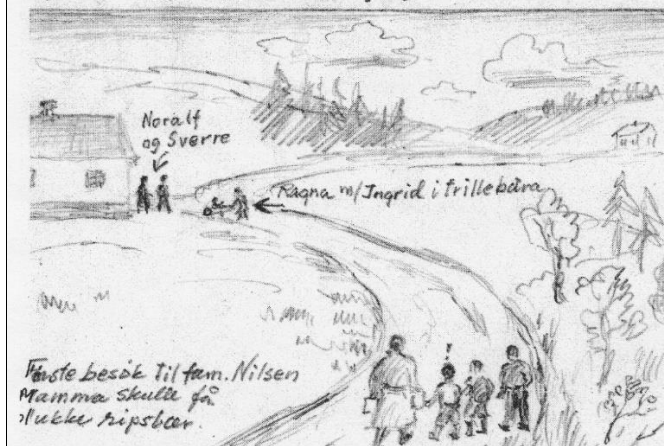 Noralf
og Sverre
Ragna m/Ingrid i trillebåra
Første besøk til fam. Nilsen
Mamma skulle få
plukke ripsbær.